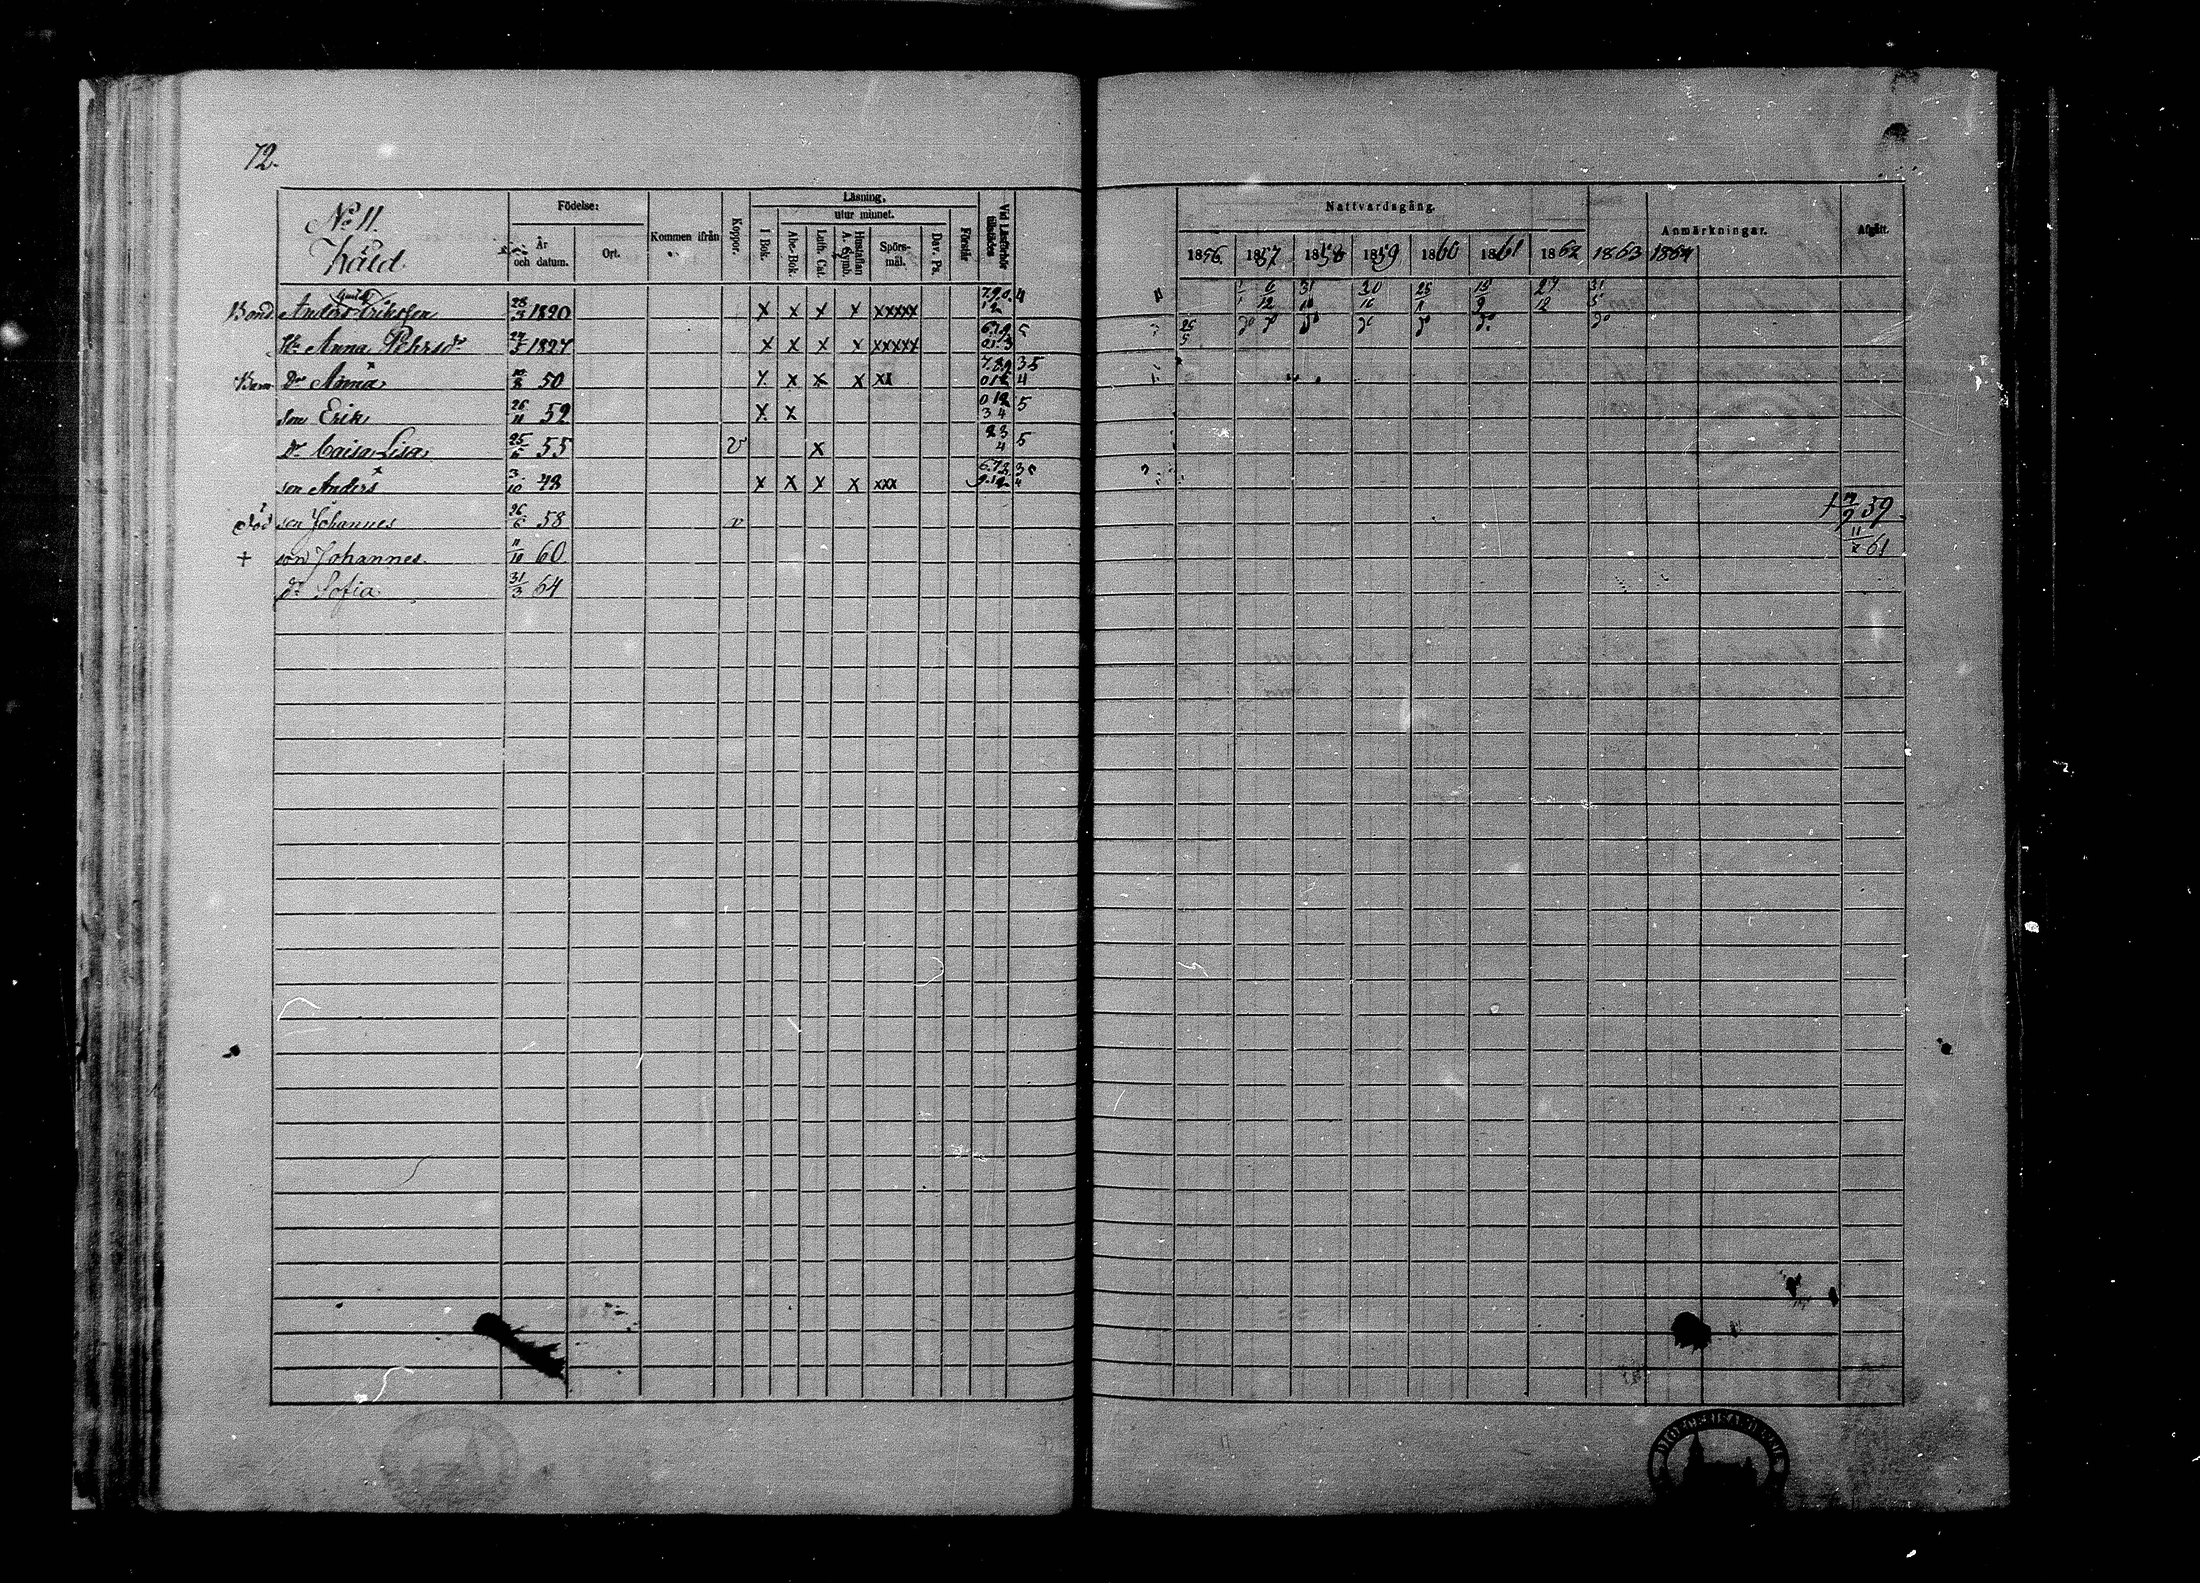 72.
No 11.
Kåld.
Födelse:
År och datum.
Ort.
Kommen ifrån
Koppor.
Läsning,
utur minnet.
I Bok.
Abc-Bok.
Luth. Cat.
Hustaflan A. Symb.
Spörs-mål.
Dav. Ps.
Förstår
Vid Läsförhör tillstädes
Nattvardsgång.
1856. 1857 1858 1859 1860 1861 1862 1863 1864
Anmärkningar.
Afgått.
Bond. Anders Eriksson 28/3 1820 x x x x xxxxx 4 6/12 31/10 30/10 25/1 15/9 27/12 31/5
Hu Anna Pehrsdr 1827 x x x x xxxxx 25/5 do do do do do do do
Barn Dr Anna 50 x x x x xx 35 4
son Erik 26/11 52 x x 5
dr Caisa Lisa 25/6 55 v x 23 4 5
son Anders 3/10 48 x x x x xxx
Död son Johannes 26/6 58 v † 9 59
† son Johannes. 11/10 60 11/x 61
dr Sofia 31/3 64